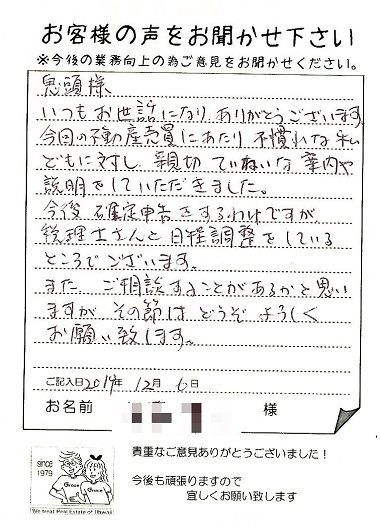 お客様の声をお聞かせ下さい
※今後の業務向上の為ご意見をお聞かせください。
鬼頭様、
いつもお世話になり ありがとうございます
今回の不動産売買にあたり 不慣れな私
どもに対し、親切 ていねいな案内や
説明をしていただきました。
今後 確定申告をするわけですが
税理士さんと日程調整をしている
ところでございます。
また ご相談することがあるかと思い
ますが その節は どうぞ よろしく
お願い致します。
ご記入日2019年 12月 6日
お名前 様
since
1979
Grace
Grace
We treat Real Estate of Hawaii
貴重なご意見ありがとうございました！
今後も頑張りますので
宜しくお願い致します